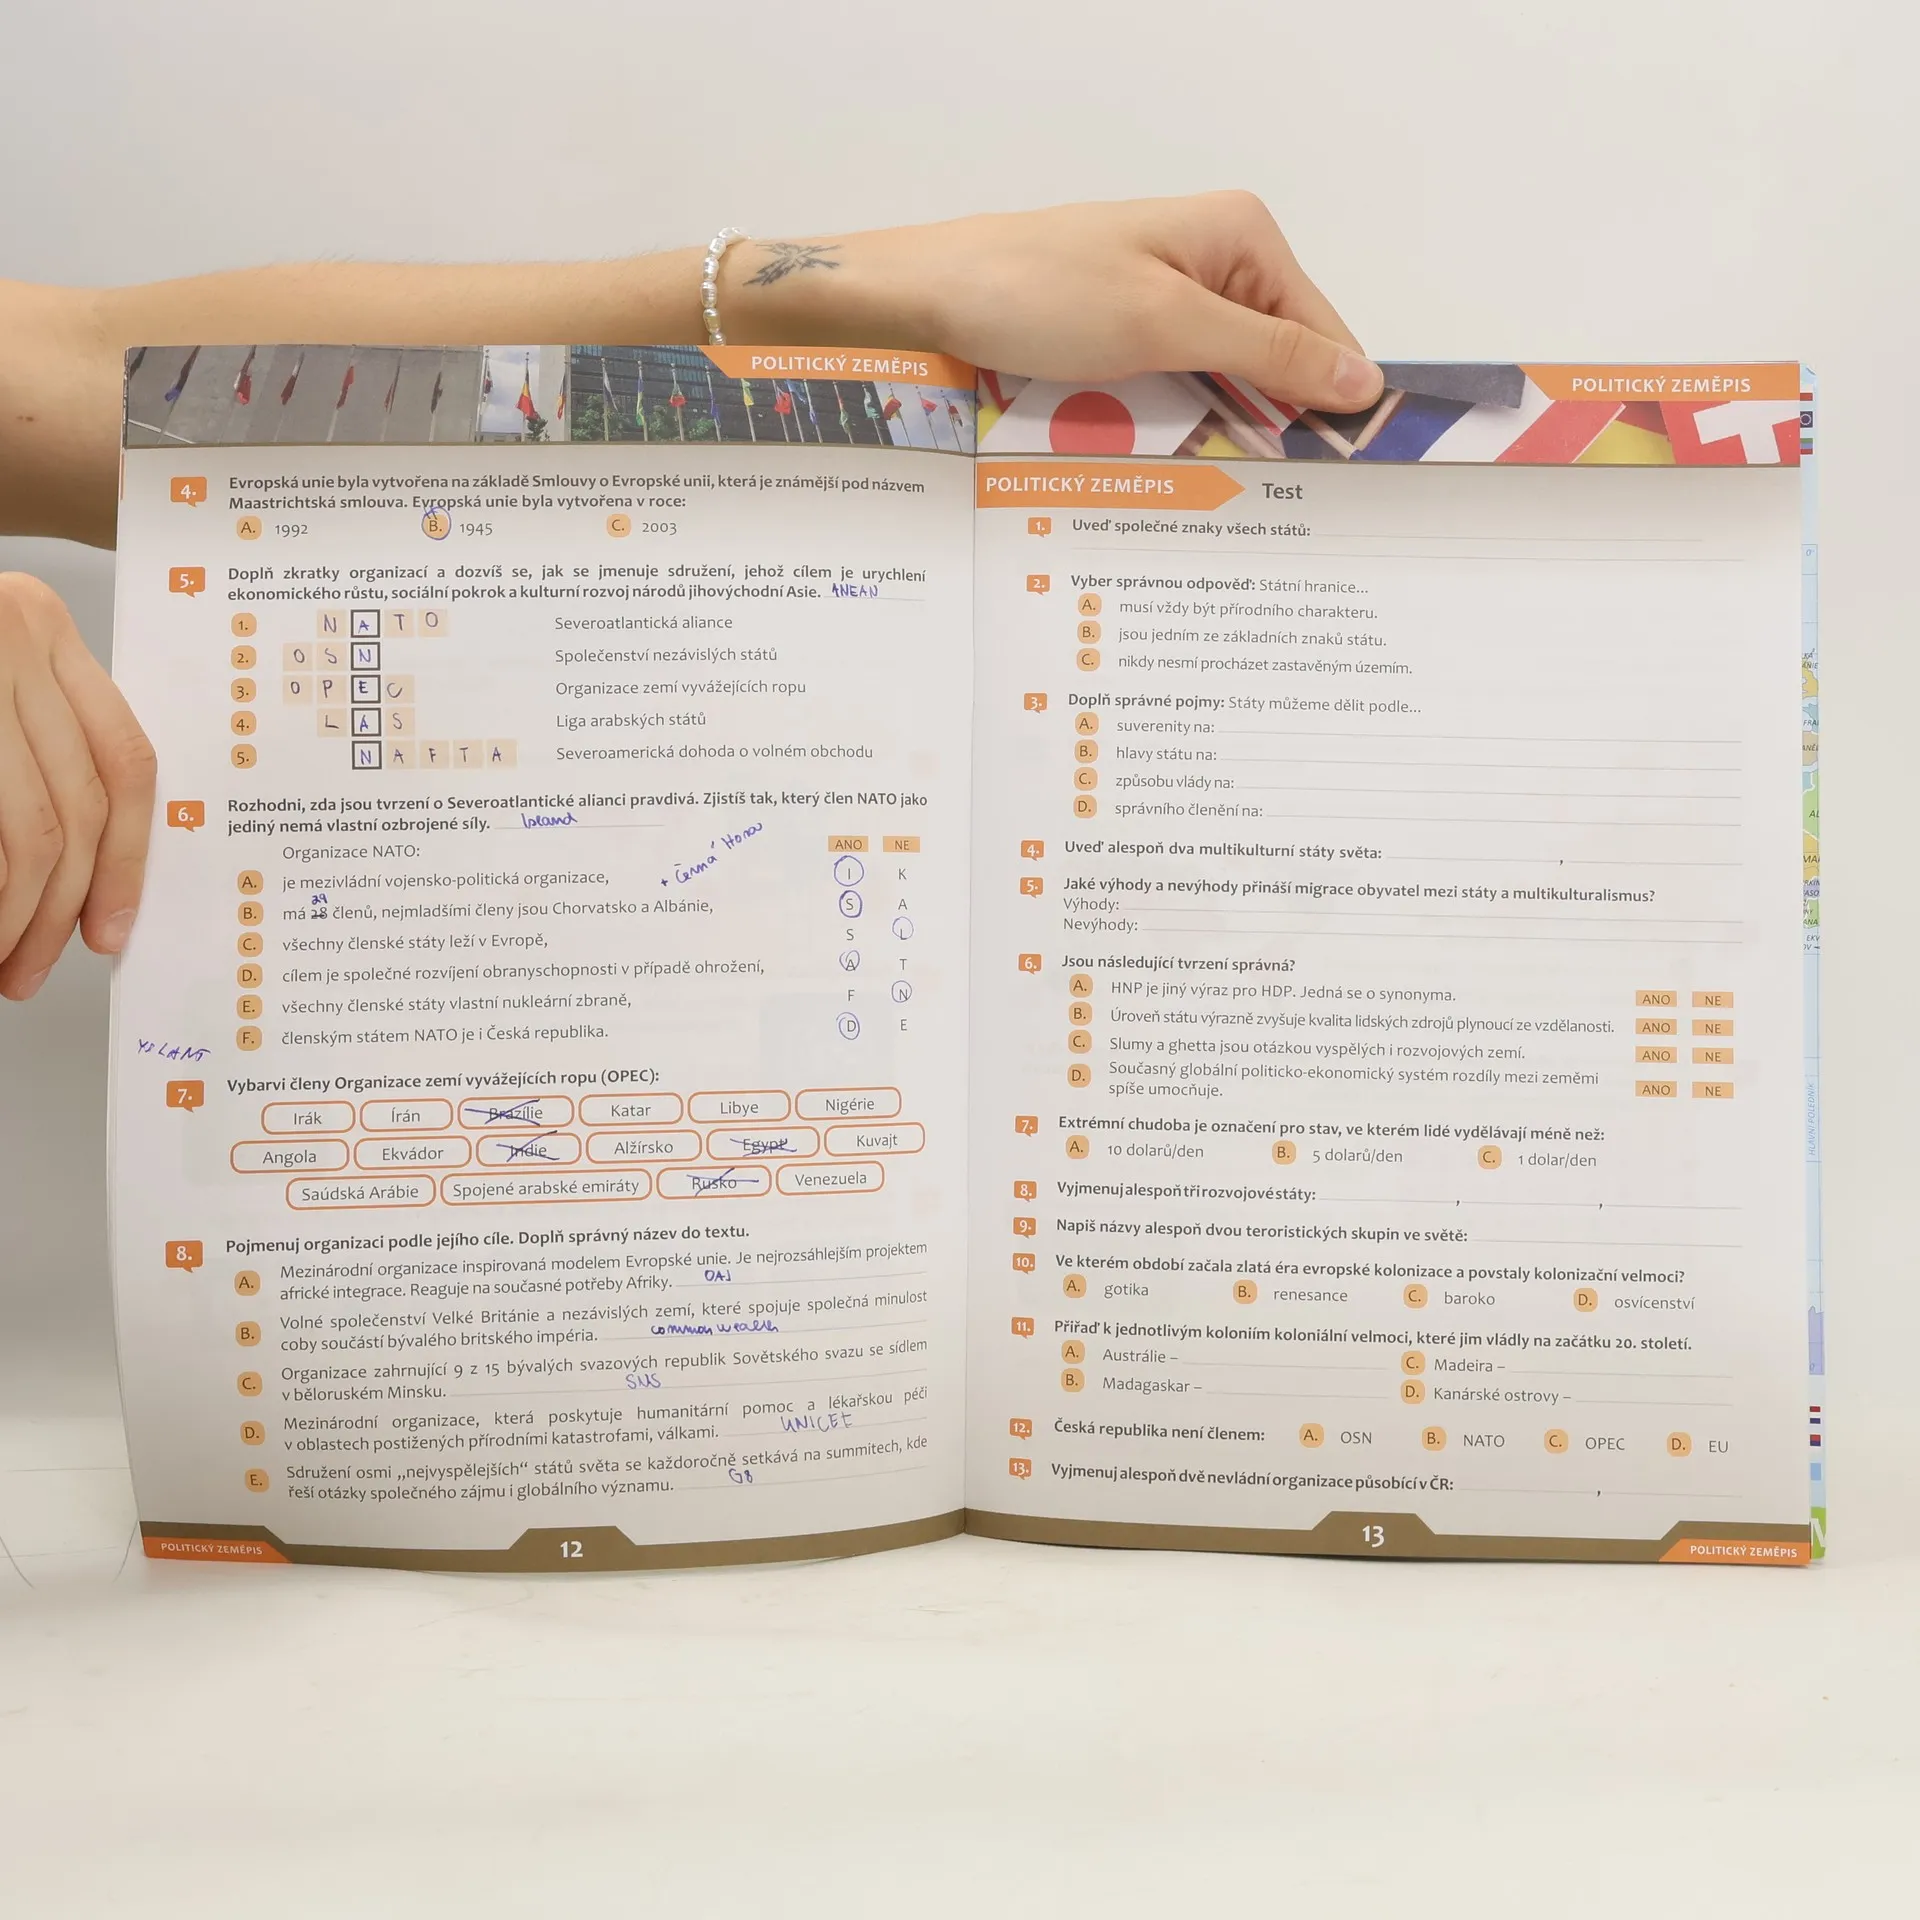 POLITICKÝ ZEMĚPIS
4. Evropská unie byla vytvořena na základě Smlouvy o Evropské unii, která je známější pod názvem
Maastrichtská smlouva. Evropská unie byla vytvořena v roce:
A. 1992 B. 1945 C. 2003
5. Doplň zkratky organizací a dozvíš se, jak se jmenuje sdružení, jehož cílem je urychlení
ekonomického růstu, sociální pokrok a kulturní rozvoj národů jihovýchodní Asie. ANEAN
1. N A T O Severoatlantická aliance
2. O S N Společenství nezávislých států
3. O P E C Organizace zemí vyvážejících ropu
4. L A S Liga arabských států
5. N A F T A Severoamerická dohoda o volném obchodu
6. Rozhodni, zda jsou tvrzení o Severoatlantické alianci pravdivá. Zjistíš tak, který člen NATO jako
jediný nemá vlastní ozbrojené síly. Island
Organizace NATO: ANO NE
+ Černá Hora
A. je mezivládní vojensko-politická organizace, I K
29
B. má 28 členů, nejmladšími členy jsou Chorvatsko a Albánie, S A
C. všechny členské státy leží v Evropě, S L
D. cílem je společné rozvíjení obranyschopnosti v případě ohrožení, A T
E. všechny členské státy vlastní nukleární zbraně, F N
F. členským státem NATO je i Česká republika. D E
YSLANT
7. Vybarvi členy Organizace zemí vyvážejících ropu (OPEC):
Irák Írán Brazílie Katar Libye Nigérie
Angola Ekvádor Indie Alžírsko Egypt Kuvajt
Saúdská Arábie Spojené arabské emiráty Rusko Venezuela
8. Pojmenuj organizaci podle jejího cíle. Doplň správný název do textu.
A. Mezinárodní organizace inspirovaná modelem Evropské unie. Je nejrozsáhlejším projektem
africké integrace. Reaguje na současné potřeby Afriky. OAJ
B. Volné společenství Velké Británie a nezávislých zemí, které spojuje společná minulost
coby součástí bývalého britského impéria. commonwealth
C. Organizace zahrnující 9 z 15 bývalých svazových republik Sovětského svazu se sídlem
v běloruském Minsku. SNS
D. Mezinárodní organizace, která poskytuje humanitární pomoc a lékařskou péči
v oblastech postižených přírodními katastrofami, válkami. UNICEF
E. Sdružení osmi „nejvyspělejších“ států světa se každoročně setkává na summitech, kde
řeší otázky společného zájmu i globálního významu. G8
POLITICKÝ ZEMĚPIS 12
POLITICKÝ ZEMĚPIS
POLITICKÝ ZEMĚPIS Test
1. Uveď společné znaky všech států:
2. Vyber správnou odpověď: Státní hranice...
A. musí vždy být přírodního charakteru.
B. jsou jedním ze základních znaků státu.
C. nikdy nesmí procházet zastavěným územím.
3. Doplň správné pojmy: Státy můžeme dělit podle...
A. suverenity na:
B. hlavy státu na:
C. způsobu vlády na:
D. správního členění na:
4. Uveď alespoň dva multikulturní státy světa: ,
5. Jaké výhody a nevýhody přináší migrace obyvatel mezi státy a multikulturalismus?
Výhody:
Nevýhody:
6. Jsou následující tvrzení správná?
A. HNP je jiný výraz pro HDP. Jedná se o synonyma. ANO NE
B. Úroveň státu výrazně zvyšuje kvalita lidských zdrojů plynoucí ze vzdělanosti. ANO NE
C. Slumy a ghetta jsou otázkou vyspělých i rozvojových zemí. ANO NE
D. Současný globální politicko-ekonomický systém rozdíly mezi zeměmi
spíše umocňuje. ANO NE
7. Extrémní chudoba je označení pro stav, ve kterém lidé vydělávají méně než:
A. 10 dolarů/den B. 5 dolarů/den C. 1 dolar/den
8. Vyjmenuj alespoň tři rozvojové státy: , ,
9. Napiš názvy alespoň dvou teroristických skupin ve světě:
10. Ve kterém období začala zlatá éra evropské kolonizace a povstaly kolonizační velmoci?
A. gotika B. renesance C. baroko D. osvícenství
11. Přiřaď k jednotlivým koloniím koloniální velmoci, které jim vládly na začátku 20. století.
A. Austrálie – C. Madeira –
B. Madagaskar – D. Kanárské ostrovy –
12. Česká republika není členem: A. OSN B. NATO C. OPEC D. EU
13. Vyjmenuj alespoň dvě nevládní organizace působící v ČR: ,
13 POLITICKÝ ZEMĚPIS